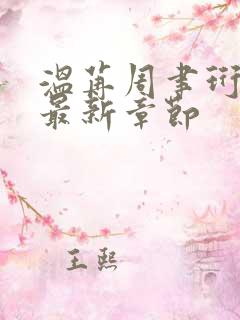 温苒周聿珩
最新章节
王熙